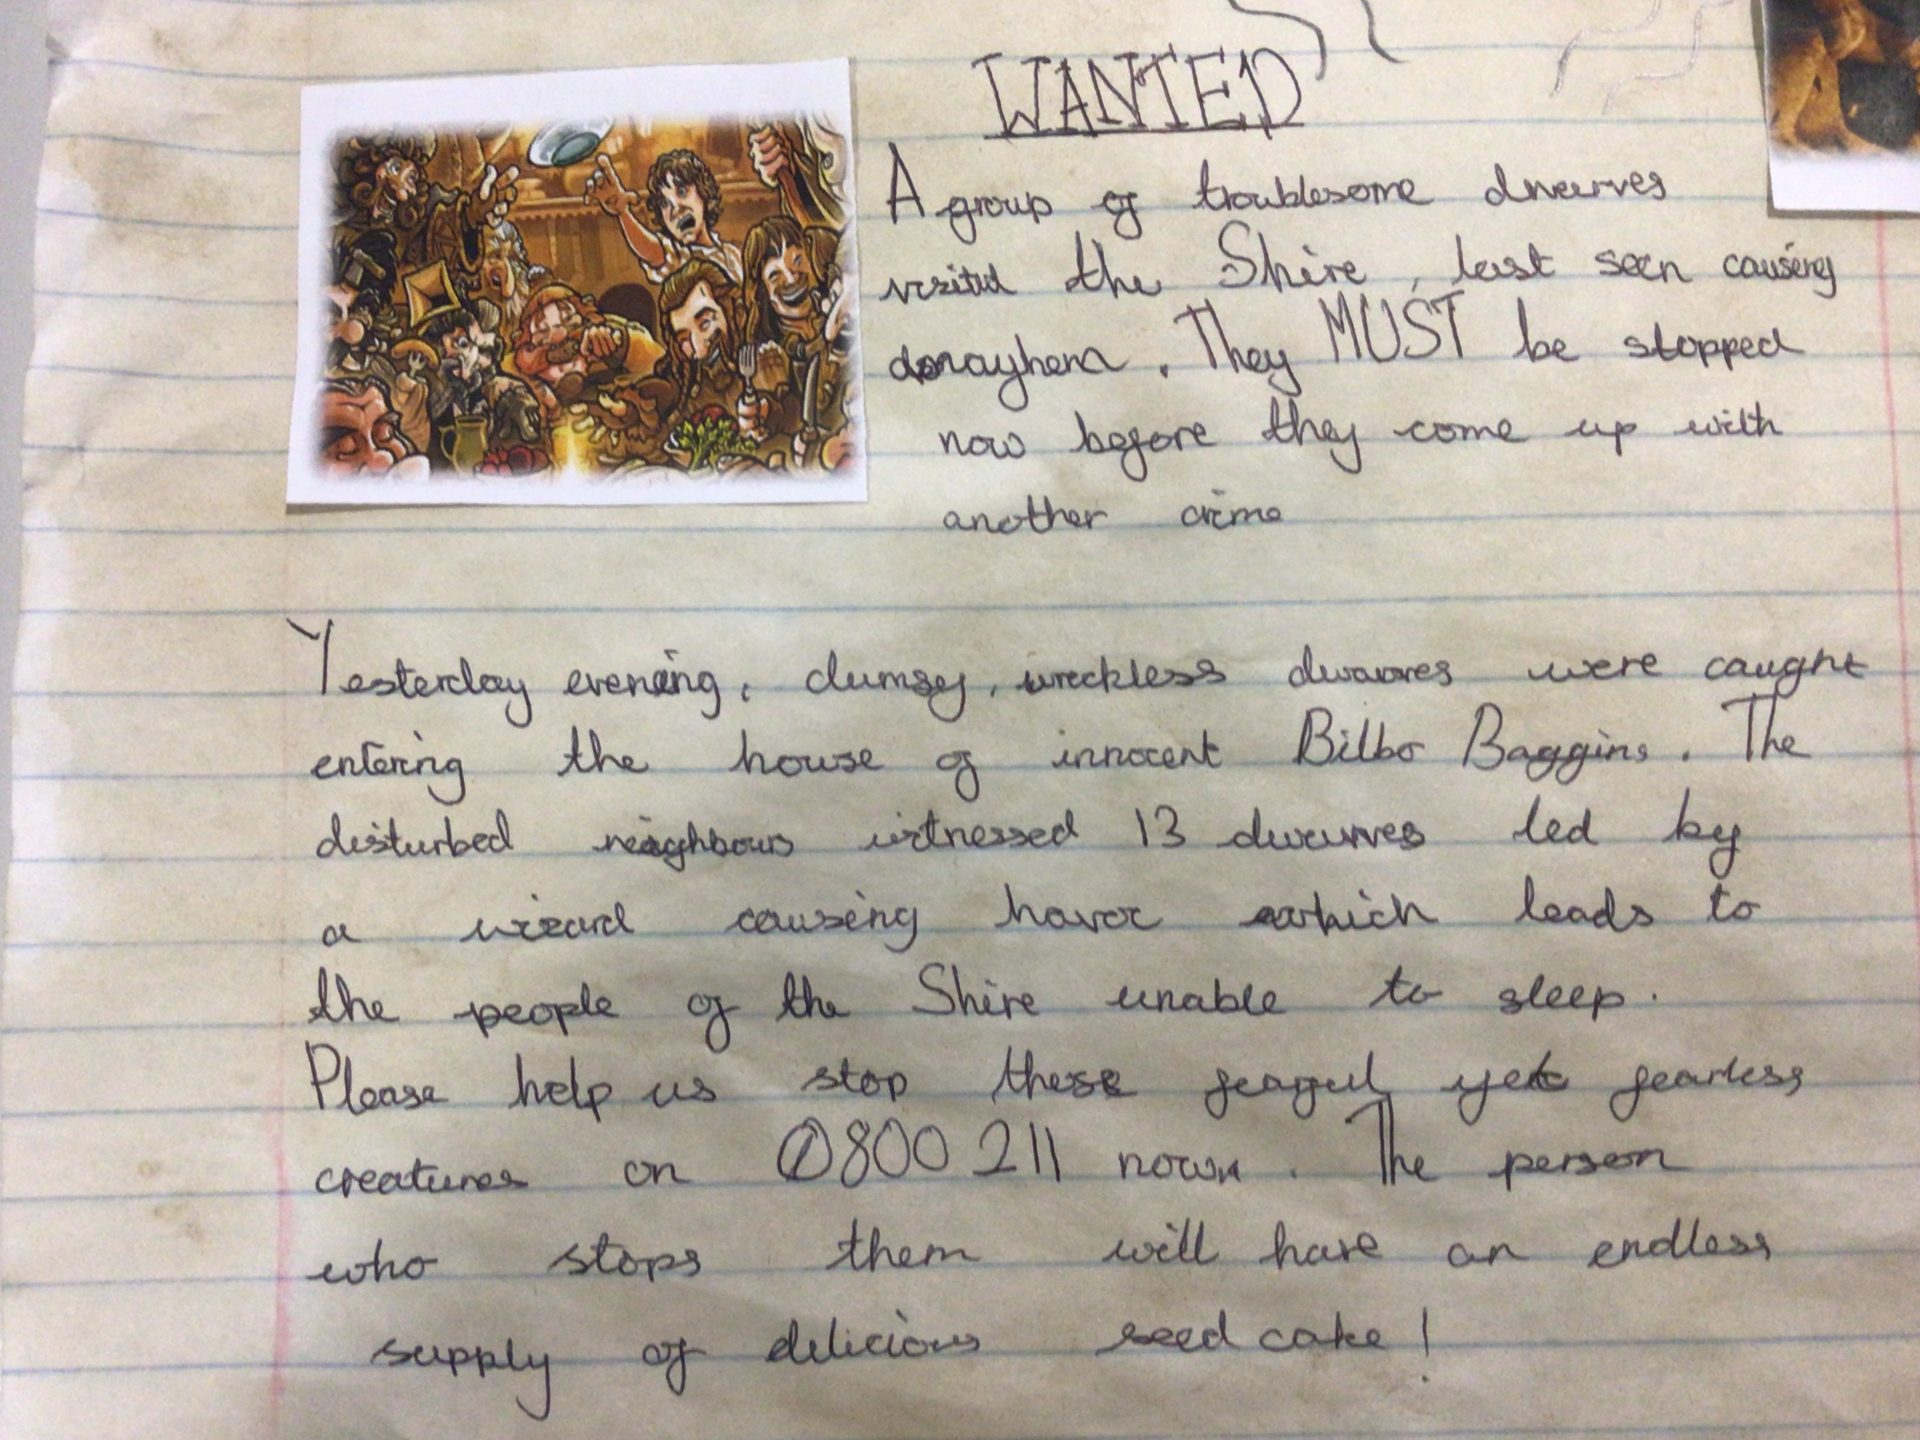 WANTED
A group of troublesome dwarves
visited the Shire, last seen causing
mayhem. They MUST be stopped
now before they come up with
another crime
Yesterday evening, clumsy, wreckless dwarves were caught
entering the house of innocent Bilbo Baggins. The
disturbed neighbours witnessed 13 dwarves led by
a wizard causing havoc which leads to
the people of the Shire unable to sleep.
Please help us stop these fearful yet fearless
creatures on 0800 211 now. The person
who stops them will have an endless
supply of delicious seed cake!